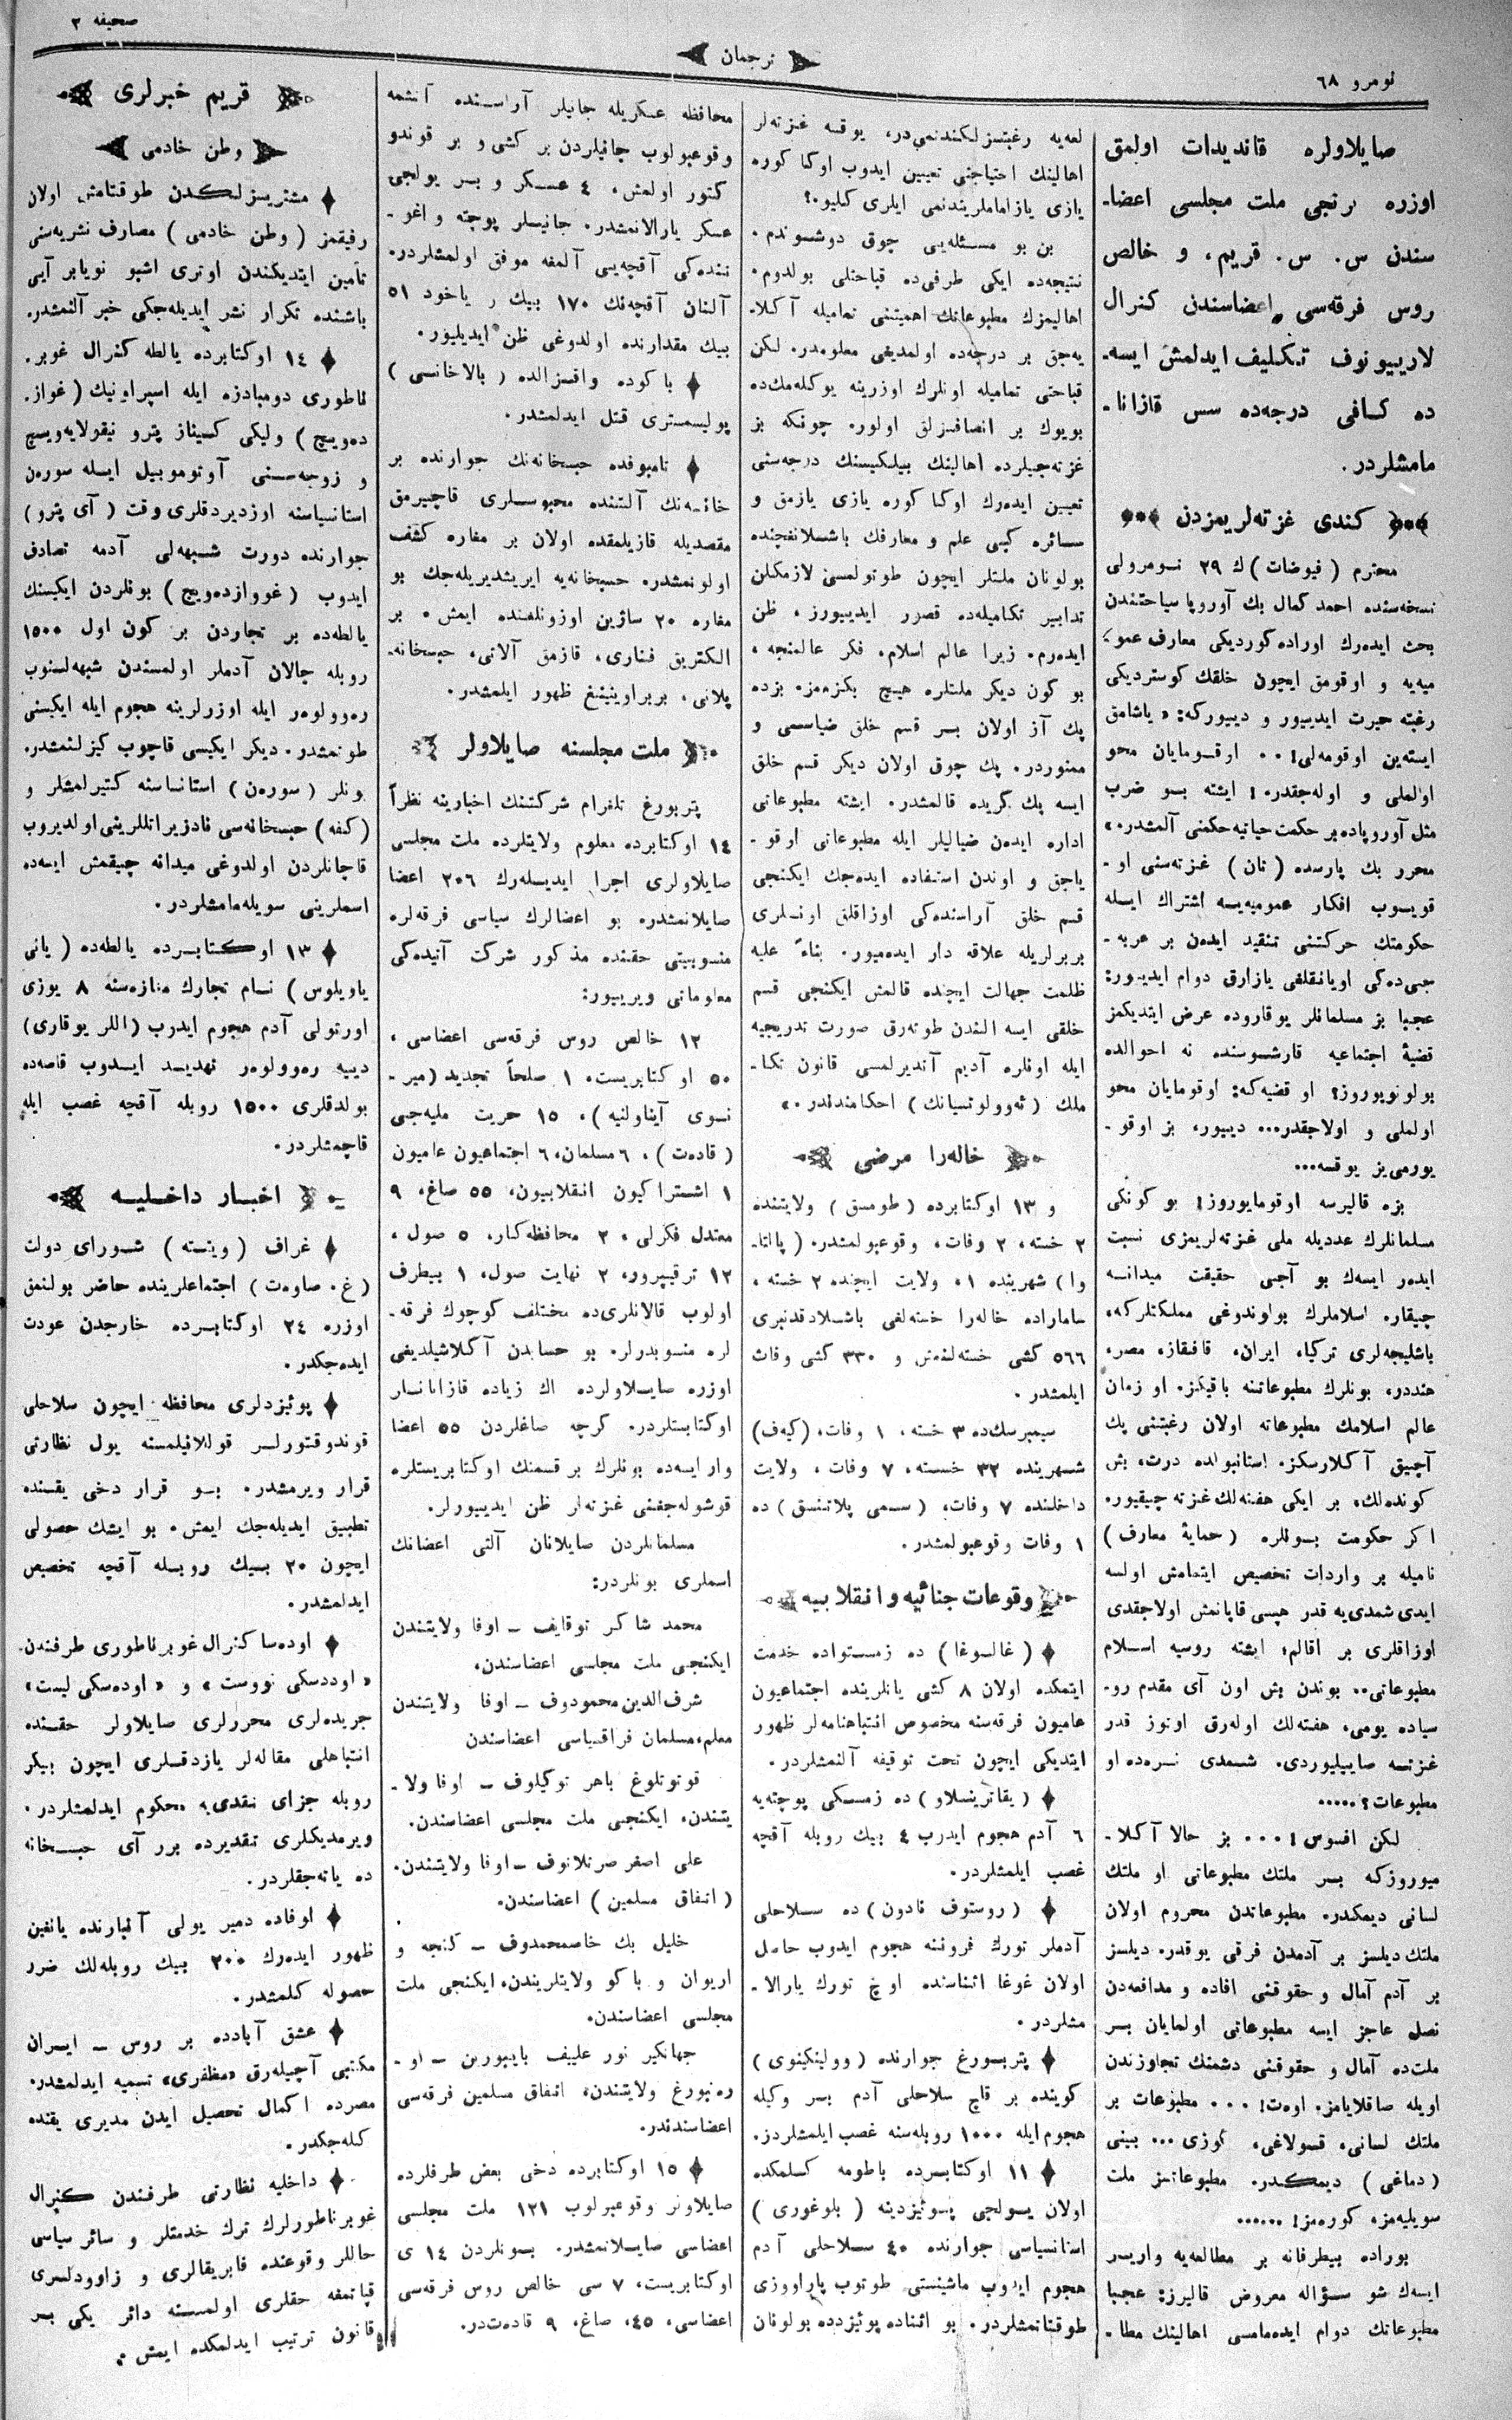 نومرو ٦٨
ترجمان
صحيفه ٣
صايلاولره قانديدات اولمق
اوزره برنجی ملت مجلسی اعضا-
سندن س. س. قريم، و خالص
روس فرقه‌سی اعضاسندن كنرال
لاريیونوف تكليف ايدلمش ايسه-
ده كافی درجه‌ده سس قازانا-
مامشلردر.
كندی غزته‌لريمزدن
محترم (فيوضات)ك ٢٩ نومرولی
نسخه‌سنده احمد كمال بك آوروپا سياحتندن
بحث ايده‌رك اوراده كورديكی معارف عمو-
ميه‌يه و اوقومق ايچون خلقك كوسترديكی
رغبته حيرت ايديیور و دييوركه: «ياشامق
ايسته‌ين اوقومه‌لی! ٠٠ اوقومايان محو
اولملی و اوله‌جقدر.! ايشته بو ضرب
مثل آوروپاده بر حكمت حياتيه حكمنی آلمشدر.»
محرر بك پارسده (تان) غزته‌سنی او-
قويوب افكار عموميه‌يه اشتراك ايله
حكومتك حركتنی تنقيد ايدن بر عربه-
جی‌ده‌كی اويانقلغی يازارق دوام ايدیور:
عجبا بز مسلمانلر يوقاروده عرض ايتديكمز
قضيهٔ اجتماعيه قارشوسنده نه احوالده
بولونويوروز؟ او قضيه‌كه: اوقومايان محو
اولملی و اولاجقدر... دييور، بز اوقو-
يورمی‌يز يوقسه...
بزه قاليرسه اوقومايوروز! بو كونكی
مسلمانلرك عدديله ملی غزته‌لريمزی نسبت
ايده‌ر ايسه‌ك بو آجی حقيقت ميدانه
چيقار. اسلاملرك بولوندوغی مملكتلركه،
باشليجه‌لری تركيا، ايران، قافقاز، مصر،
هنددر، بونلرك مطبوعاتنه باقيكز. او زمان
عالم اسلامك مطبوعاته اولان رغبتنی پك
آچيق آكلارسكز. استانبولده درت، بش
كونده‌لك، بر ايكی هفته‌لك غزته چيقیور.
اكر حكومت بونلره (حمايهٔ معارف)
ناميله بر واردات تخصيص ايتمامش اولسه
ايدی شمدی‌يه قدر هپسی قاپانمش اولاجقدی
اوزاقلری بر اقالم، ايشته روسيه اسلام
مطبوعاتی.. بوندن بش اون آی مقدم رو-
سياده يومی، هفته‌لك اوله‌رق اوتوز قدر
غزته صاييليوردی. شمدی نره‌ده او
مطبوعات؟.....
لكن افسوس! ٠٠٠ بز حالا آكلا-
ميوروزكه بر ملتك مطبوعاتی او ملتك
لسانی ديمكدر. مطبوعاتدن محروم اولان
ملتك ديلسز بر آدمدن فرقی يوقدر. ديلسز
بر آدم آمال و حقوقنی افاده و مدافعه‌دن
نصل عاجز ايسه مطبوعاتی اولمايان بر
ملت‌ده آمال و حقوقنی دشمنك تجاوزندن
اويله صاقلايامز. اوت! ٠٠٠ مطبوعات بر
ملتك لسانی، قولاغی، كوزی... بينی
(دماغی) ديمكدر. مطبوعاتسز ملت
سويليه‌مز، كوره‌مز! ......
بوراده بيطرفانه بر مطالعه‌يه واريـر
ايسه‌ك شو سؤاله معروض قاليرز: عجبا
مطبوعاتك دوام ايده‌مامسی اهالينك مطا-
لعه‌يه رغبتسزلكندنمی‌در، يوقسه غزته‌لر
اهالينك احتياجنی تعيين ايدوب اوكا كوره
يازی يازاماملریندنمی ايلری كليو.؟
بن بو مسئله‌يی چوق دوشوندم.
نتيجه‌ده ايكی طرفی‌ده قباحتلی بولدوم.
اهاليمزك مطبوعاتك اهميتنی تماميله آكلا-
يه‌جق بر درجه‌ده اولمديغی معلومدر. لكن
قباحتی تماميله اونلرك اوزرينه يوكله‌مك‌ده
بويوك بر انصافسزلق اولور. چونكه بز
غزته‌جيلرده اهالينك بيلكيسنك درجه‌سنی
تعيين ايده‌رك اوكا كوره يازی يازمق و
سائره كبی علم و معارفك باشلانغچنده
بولونان ملتلر ايچون طوتولمسی لازمكلن
تدابير تكاميله‌ده قصور ايديیورز، ظن
ايده‌رم. زيرا عالم اسلام، فكر عالمنجه،
بو كون ديكر ملتلره هيچ بكزه‌مز. بزده
پك آز اولان بر قسم خلق ضياسی و
ممنوردر. پك چوق اولان ديكر قسم خلق
ايسه پك گريده قالمشدر. ايشته مطبوعاتی
اداره ايده‌ن ضياليلر ايله مطبوعاتی اوقو-
ياجق و اوندن استفاده ايده‌جك ايكنجی
قسم خلق آراسنده‌كی اوزاقلق اونلری
بربرلريله علاقه دار ايده‌ميور. بناءً عليه
ظلمت جهالت ايچنده قالمش ايكنجی قسم
خلقی ايسه الندن طوته‌رق صورت تدريجيه
ايله اونلره آديم آتديرلمسی قانون تكا-
ملك (ئه‌وولوتسيانك) احكامندندر.»
خاله‌را مرضی
و ١٣ اوكتابرده (طومسق) ولايتنده
٢ خسته، ٢ وفات، وقوعبولمشدر. (پالتا-
وا) شهرينده ١، ولايت ايچنده ٢ خسته،
ساماراده خاله‌را خسته‌لغی باشلادقدنبری
٥٦٦ كشی خسته‌لنمش و ٣٣٠ كشی وفات
ايلمشدر.
سيمبرسك‌ده ٣ خسته، ١ وفات، (كيه‌ف)
شهرينده ٣٢ خسته، ٧ وفات، ولايت
داخلنده ٧ وفات، (سمی پلاتنسق) ده
١ وفات وقوعبولمشدر.
وقوعات جنائيه و انقلابيه
(غالوغا) ده زمستواده خدمت
ايتمكده اولان ٨ كشی يانلرينده اجتماعيون
عاميون فرقه‌سنه مخصوص انتباهنامه‌لر ظهور
ايتديكی ايچون تحت توقيفه آلنمشلردر.
(يقاترينسلاو) ده زمسكی پوچته‌يه
٦ آدم هجوم ايدرب ٤ بيك روبله آقچه
غصب ايلمشلردر.
(روستوف نادون) ده سلاحلی
آدملر تورك فروننه هجوم ايدوب حاصل
اولان غوغا اثناسنده اوچ تورك يارالا-
مشلردر.
پتربورغ جوارنده (وولينكينوی)
كوينده بر قاچ سلاحلی آدم بر وكيله
هجوم ايله ١٠٠٠ روبله‌سنه غصب ايلمشلردز.
١١ اوكتابرده باطومه كلمكده
اولان يولجی پوئيزدينه (بلوغوری)
استانسياسی جوارنده ٤٠ سلاحلی آدم
هجوم ايدوب ماشينستی طوتوب پاراووزی
طوقتاتمشلردر. بو اثناده پوئيزدده بولونان
محافظه عسكريله جانيلر آراسنده آتشمه
وقوعبولوب جانيلردن بر كشی و بر قوندو
كتور اولمش، ٤ عسكر و بر يولجی
عسكر يارالانمشدر. جانيلر پوچته و اغو-
ننده‌كی آقچه‌يی آلمغه موفق اولمشلردر.
آلنان آقچه‌نك ١٧٠ بيك ر ياخود ٥١
بيك مقدارنده اولدوغی ظن ايديليور.
باكوده واقزالده (بالاخانسی)
پوليسمستری قتل ايدلمشدر.
تامبوفده حبسخانه‌نك جوارنده بر
خانه‌نك آلتنده محبوسلری قاچيرمق
مقصديله قازيلمقده اولان بر مغاره كشف
اولونمشدر. حبسخانه‌يه ايريشديريله‌جك بو
مغاره ٢٠ ساژين اوزونلغنده ايمش. بر
الكتريق فناری، قازمق آلاتی، حبسخانه-
پلانی، بر براوينينغ ظهور ايلمشدر.
ملت مجلسنه صايلاولر
پتربورغ تلغرام شركتنك اخبارينه نظراً
١٤ اوكتابرده معلوم ولايتلرده ملت مجلسی
صايلاولری اجرا ايديله‌رك ٢٠٦ اعضا
صايلانمشدر. بو اعضالرك سياسی فرقه‌لره
منسوبيتی حقنده مذكور شركت آتيده‌كی
معلوماتی ويريیور:
١٢ خالص روس فرقه‌سی اعضاسی،
٥٠ اوكتابريست، ١ صلحاً تجديد (مير-
نوی آبناولنيه)، ١٥ حريت مليه‌جی
(قاده‌ت)، ٦ مسلمان، ٦ اجتماعيون عاميون
١ اشتراكيون انقلابيون، ٥٥ صاغ، ٩
معتدل فكرلی، ٢ محافظه‌كار، ٥ صول،
١٢ ترقيپرور، ٢ نهايت صول، ١ بيطرف
اولوب قالانلری‌ده مختلف كوچوك فرقه-
لره منسوبدرلر. بو حسابدن آكلاشيلديغی
اوزره صايلاولرده اك زياده قازانانلر
اوكتابستلردر. گرچه صاغلردن ٥٥ اعضا
وارايسه‌ده بونلرك بر قسمنك اوكتابريستلره
قوشوله‌جغنی غزته‌لر ظن ايديیورلر.
مسلمانلردن صايلانان آلتی اعضانك
اسملری بونلردر:
محمد شاكر توقايف ـ اوفا ولايتندن
ايكنجی ملت مجلسی اعضاسندن،
شرف‌الدين محمودوف ـ اوفا ولايتندن
معلم، مسلمان فراقسياسی اعضاسندن
قوتوتلوغ باهر توكيلوف ـ اوفا ولا-
يتندن، ايكنجی ملت مجلسی اعضاسندن.
علی اصغر صرتلانوف ـ اوفا ولايتندن.
(اتفاق مسلمين) اعضاسندن.
خليل بك خاصمحمدوف ـ گنجه و
اريوان و باكو ولايتلريندن، ايكنجی ملت
مجلسی اعضاسندن.
جهانكير نور عليف بايبورين ـ او-
ره‌نبورغ ولايتندن، اتفاق مسلمين فرقه‌سی
اعضاسندندر.
١٥ اوكتابرده دخی بعض طرفلرده
صايلاولر وقوعبولوب ١٢١ ملت مجلسی
اعضاسی صايلانمشدر. بونلردن ١٤ ی
اوكتابريست، ٧ سی خالص روس فرقه‌سی
اعضاسی، ٤٥، صاغ، ٩ قاده‌ت‌در.
قريم خبرلری
وطن خادمی
مشتريسزلكدن طوقتامش اولان
رفيقمز (وطن خادمی) مصارف نشريه‌سنی
تأمين ايتديكندن اوتری اشبو نويابر آيی
باشنده تكرار نشر ايديله‌جكی خبر آلنمشدر.
١٤ اوكتابرده يالطه كنرال غوبر-
ناطوری دومبادزه ايله اسپراونيك (غواز-
ده‌ويچ) وليكی كيناز پترو نيقولايه‌ويچ
و زوجه‌سنی آوتوموبيل ايله سوره‌ن
استانسياسنه اوزديردقلری وقت (آی پترو)
جوارنده دورت شبهه‌لی آدمه تصادف
ايدوب (غووازده‌ويچ) بونلردن ايكيسنك
يالطه‌ده بر تجاردن بر كون اول ١٥٠٠
روبله چالان آدملر اولمسندن شبهه‌لنوب
ره‌وولوه‌ر ايله اوزرلرينه هجوم ايله ايكيسنی
طوتمشدر. ديكر ايكيسی قاچوب كيزلنمشدر.
بونلر (سوره‌ن) استانساسنه كتيرلمشلر و
(كفه) حبسخانه‌سی نادزيراتللرينی اولديروب
قاچانلردن اولدوغی ميدانه چيقمش ايسه‌ده
اسملرينی سويله‌مامشلردر.
١٣ اوكتابرده يالطه‌ده (يانی
ياويلوس) نام تجارك مغازه‌سنه ٨ يوزی
اورتولی آدم هجوم ايدرب (اللر يوقاری)
دييه ره‌وولوه‌ر تهديد ايدوب قاصه‌ده
بولدقلری ١٥٠٠ روبله آقچه غصب ايله
قاچمشلردر.
اخبار داخليه
غراف (ويتته) شورای دولت
(غ. صاوه‌ت) اجتماعلرينده حاضر بولنمق
اوزره ٢٤ اوكتابرده خارجدن عودت
ايده‌جكدر.
پوئيزدلری محافظه ايچون سلاحلی
قوندوقتورلر قوللانيلمسنه يول نظارتی
قرار ويرمشدر. بو قرار دخی يقنده
تطبيق ايديله‌جك ايمش. بو ايشك حصولی
ايچون ٢٠ بيك روبله آقچه تخصيص
ايدلمشدر.
اوده‌سا كنرال غوبرناطوری طرفندن
«اوددسكی نووست» و «اوده‌سكی ليست»
جريده‌لری محررلری صايلاولر حقنده
انتباهلی مقاله‌لر يازدقلری ايچون بيكر
روبله جزای نقدی‌يه محكوم ايدلمشلردر.
ويرمديكلری تقديرده برر آی حبسخانه
ده ياته‌جقلردر.
اوفاده دمير يولی آنبارنده يانغين
ظهور ايده‌رك ٢٠٠ بيك روبله‌لك ضرر
حصوله كلمشدر.
عشق آبادده بر روس ـ ايران
مكتبی آچيله‌رق «مظفری» تسميه ايدلمشدر.
مصرده اكمال تحصيل ايدن مديری يقنده
كله‌جكدر.
داخليه نظارتی طرفندن كنرال
غوبرناطورلرك ترك خدمتلر و سائر سياسی
حاللر وقوعنده فابريقالری و زاوودلری
قپاتمغه حقلری اولمسنه دائر يكی بر
قانون ترتيب ايدلمكده ايمش.